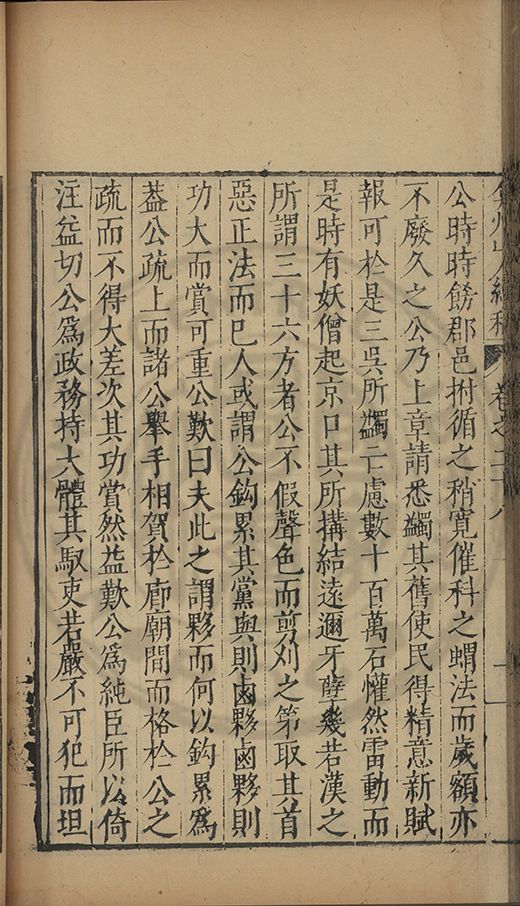 弇州山人續稿 卷之二十八
公時時餝郡邑拊循之稍寬催科之蝟法而歲額亦
不廢久之公乃上章請悉蠲其舊使民得精意新賦
報可於是三吳所蠲亡慮數十百萬石懽然雷動而
是時有妖僧起京口其所搆結遠邇牙孽幾若漢之
所謂三十六方者公不假聲色而剪刈之第取其首
惡正法而已人或謂公鈎累其黨與則鹵夥鹵夥則
功大而賞可重公歎曰夫此之謂夥而何以鈎累爲
葢公疏上而諸公舉手相賀於廊廟間而格於公之
疏而不得大差次其功賞然益歎公爲純臣所以倚
注益切公爲政務持大體其馭吏若嚴不可犯而坦